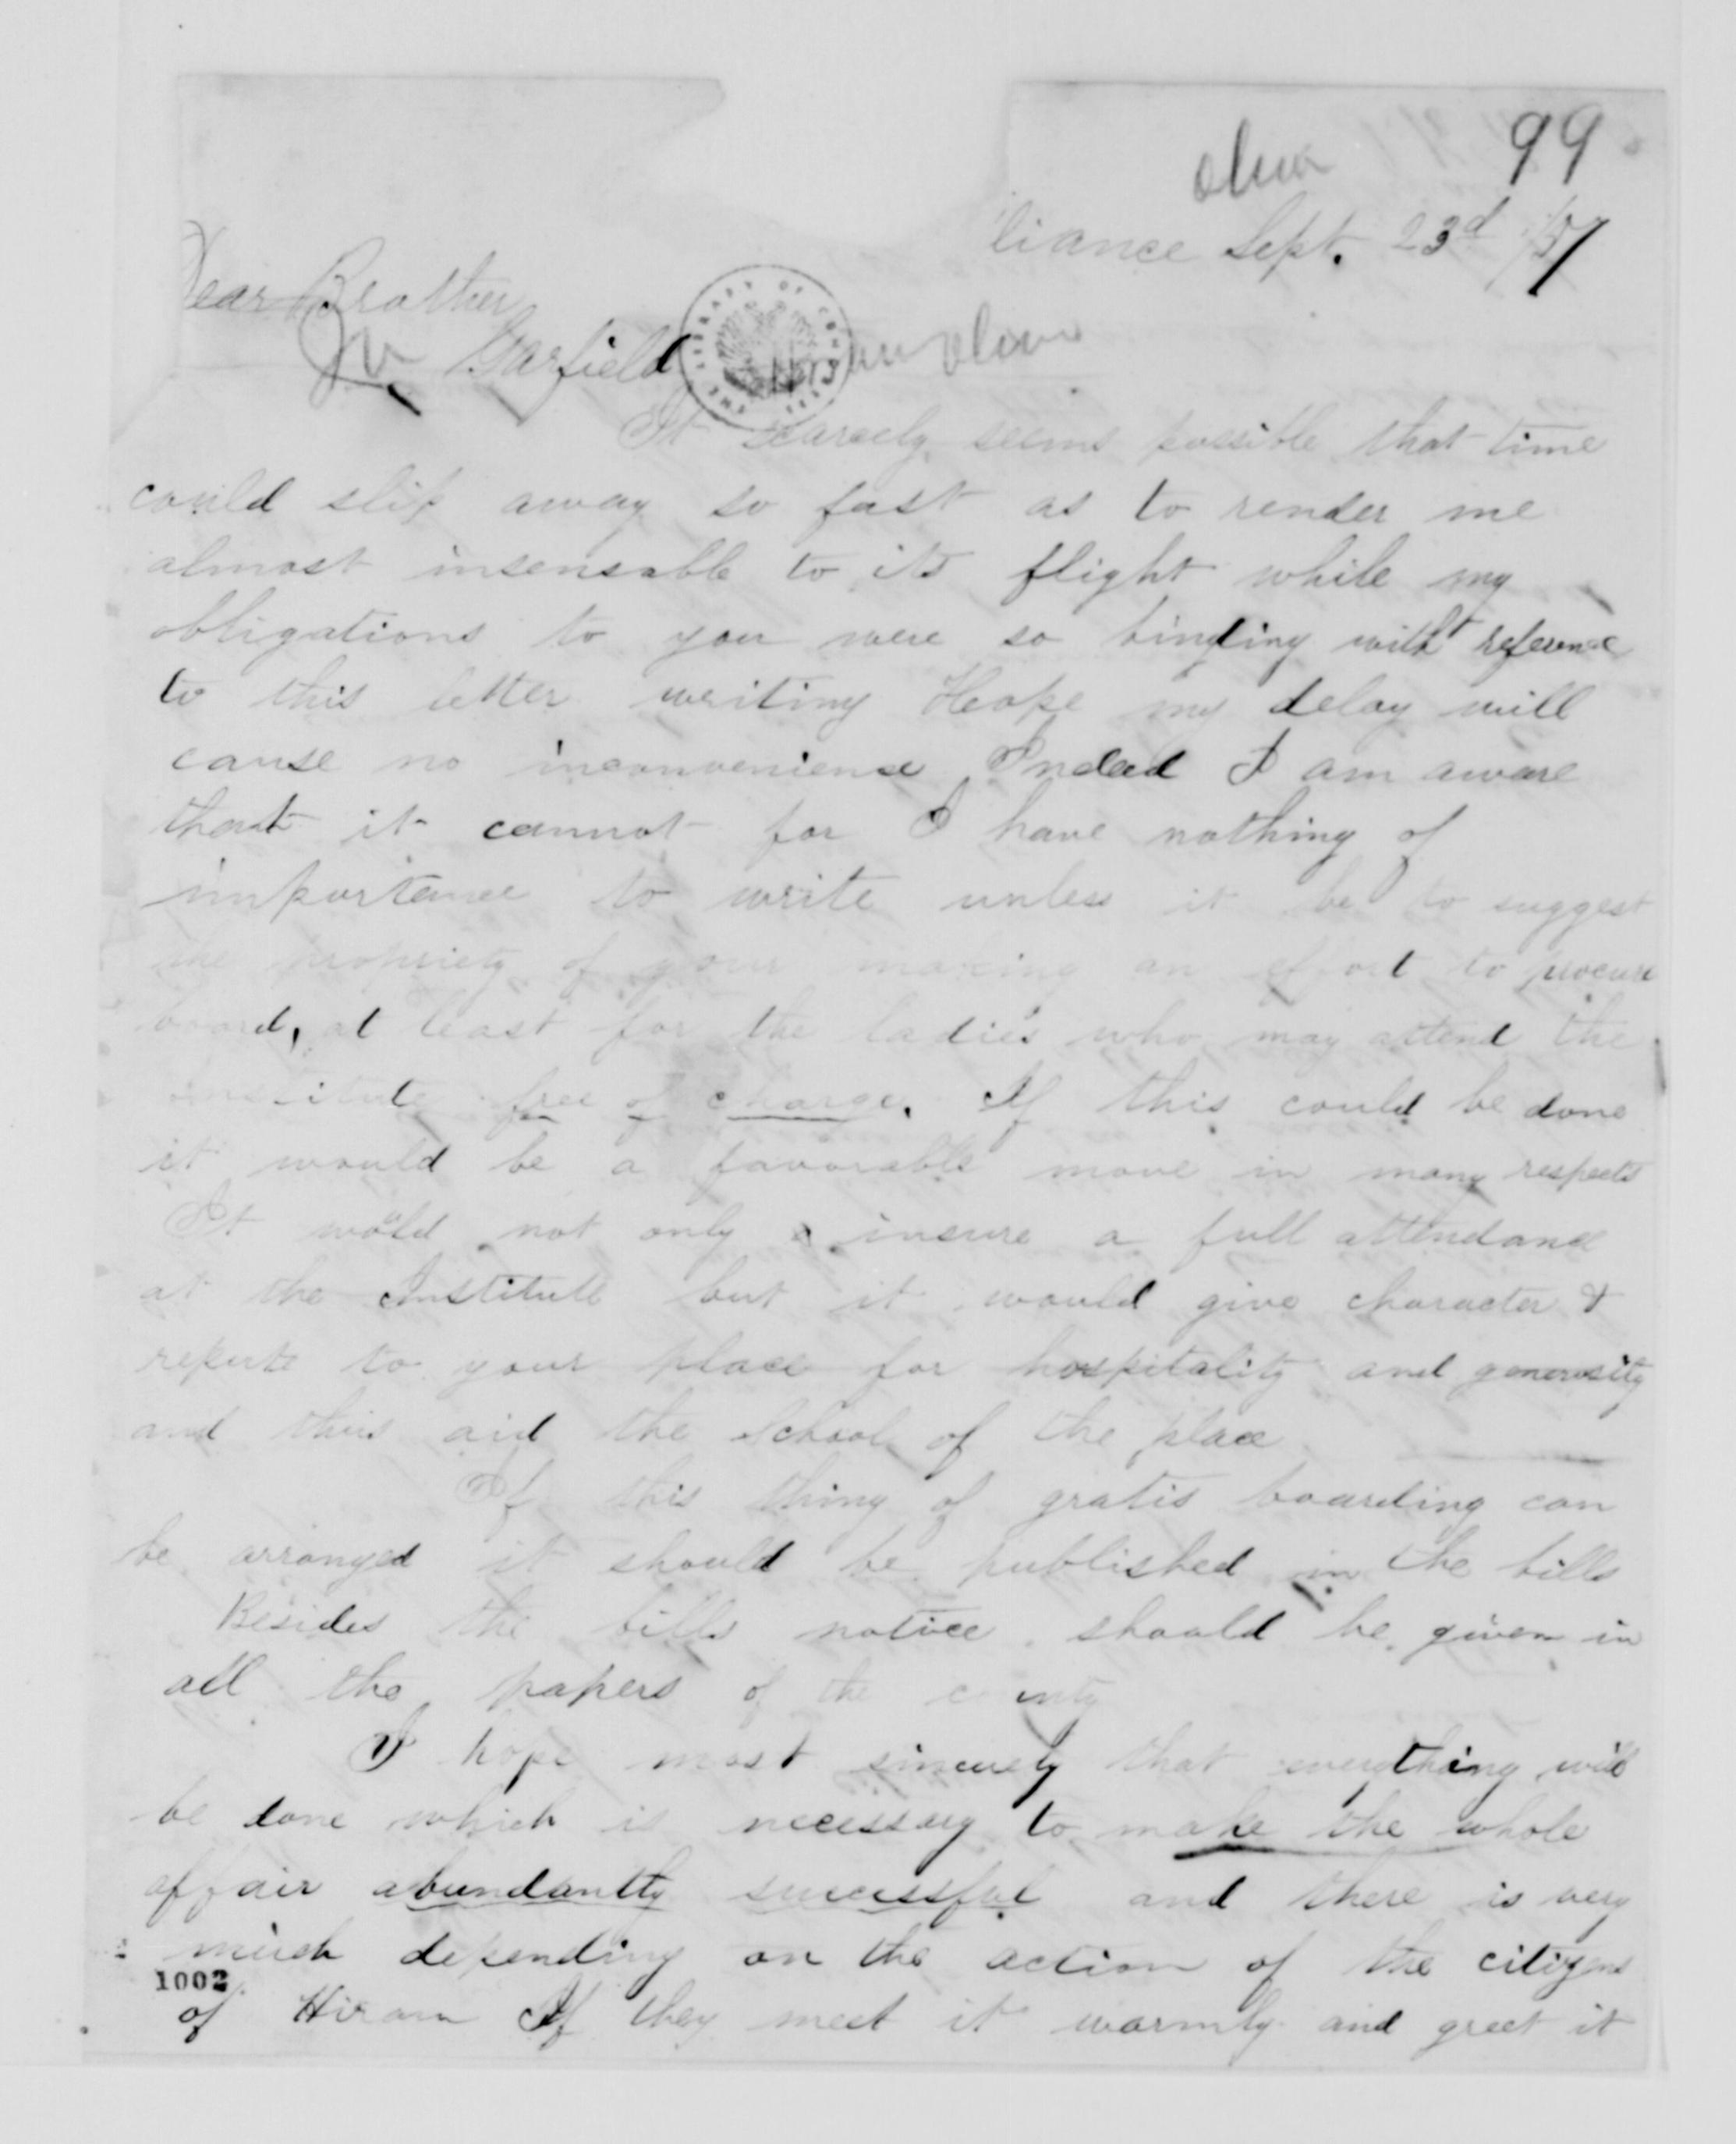 99
Ohio
liance Sept. 23d /57
Dear Brother
Garfield
It scarcely seems possible that time
could slip away so fast as to render me
almost insensable to its flight while my
obligations to you were so binding with reference
to this letter writing Hope my delay will
cause no inconvenience Indeed I am aware
that it cannot for I have nothing of
importance to write unless it be to suggest
the propriety of your making an effort to procure
board, at least for the ladies who may attend the
institute free of charge. If this could be done
it would be a favorable move in many respects
It would not only insure a full attendance
at the Institute but it would give character &
repute to your place for hospitality and generosity
and thus aid the school of the place
If this thing of gratis boarding can
be arranged it should be published in the bills
Besides the bills notice should be given in
all the papers of the county
I hope most sincerely that everything will
be done which is necessary to make the whole
affair abundantly successful and there is very
much depending on the action of the citizens
1002
of Hiram If they meet it warmly and greet it